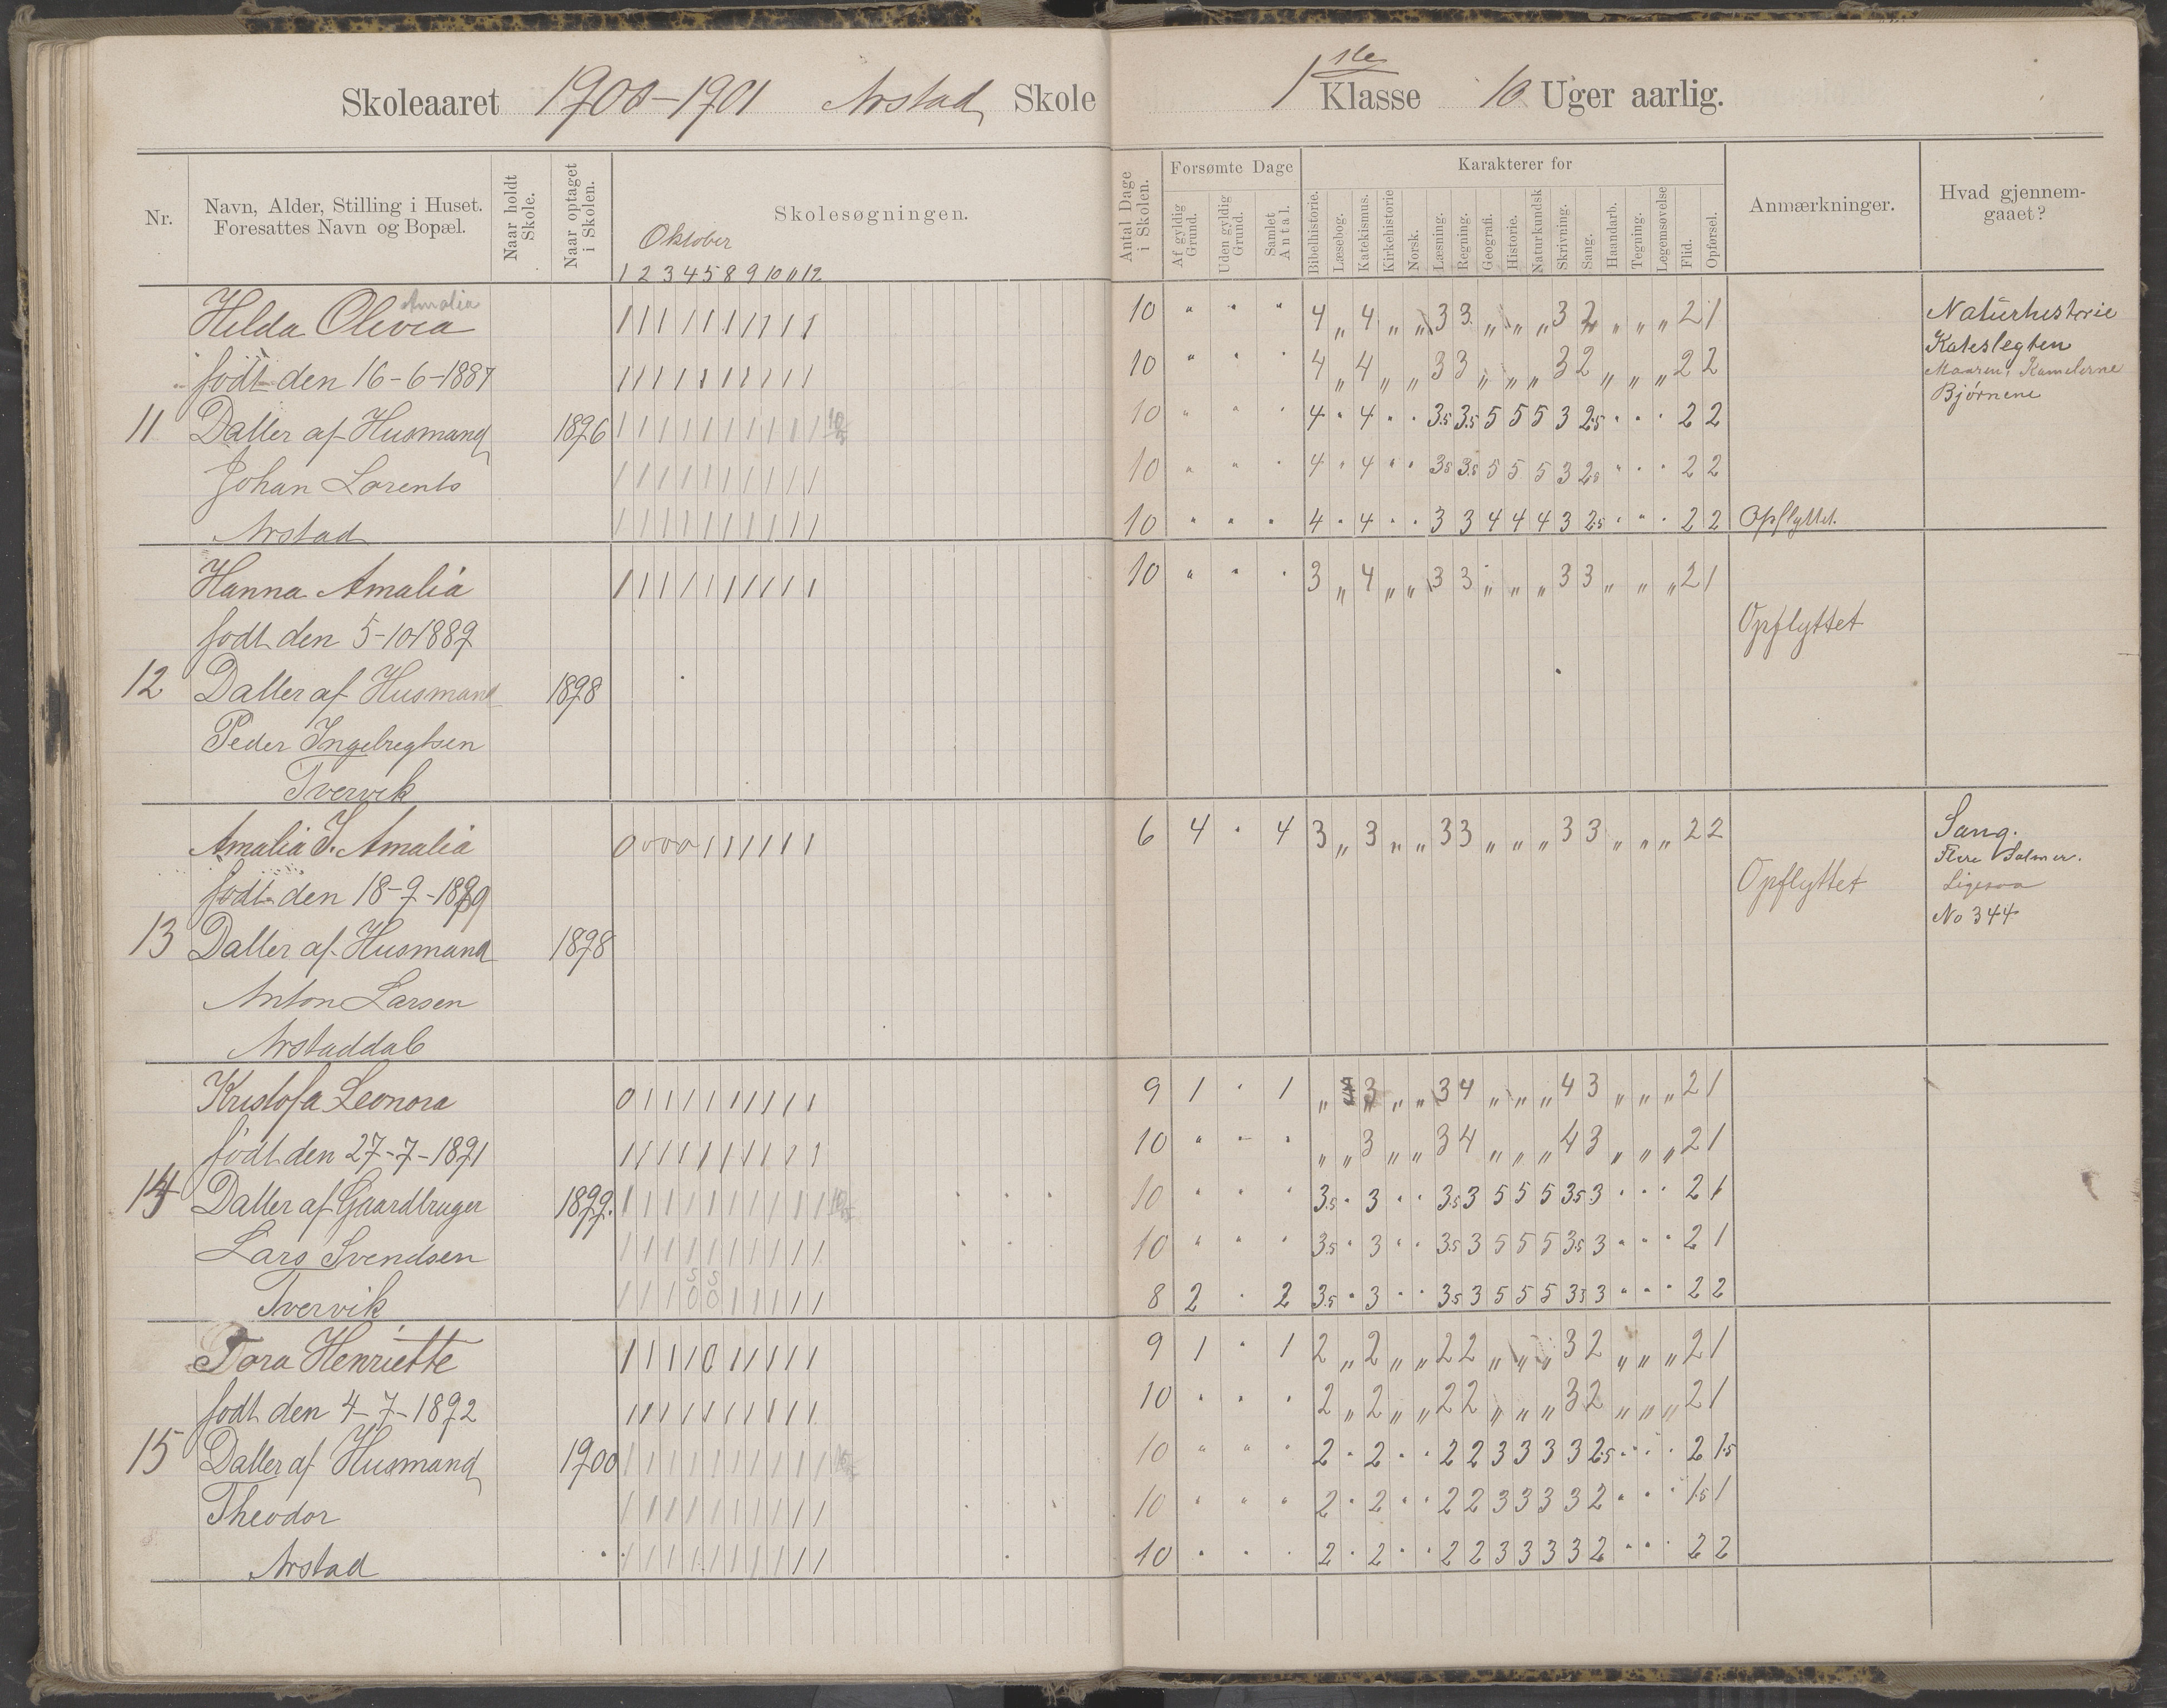 Skoleaaret 1900-1901 Arstad Skole 1ste Klasse 10 Uger aarlig.
Nr.
Navn, Alder, Stilling i Huset. Foresattes Navn og Bopæl.
Naar holdt Skole.
Naar optaget i Skolen.
Skolesøgningen.
Oktober
1 2 3 4 5 8 9 10 11 12
Antal Dage i Skolen.
Forsømte Dage
Af gyldig Grund.
Uden gyldig Grund.
Samlet Antal.
Karakterer for
Bibelhistorie.
Læsebog.
Katekismus.
Kirkehistorie
Norsk.
Læsning.
Regning.
Geografi.
Historie.
Naturkundsk
Skrivning.
Sang.
Haandarb.
Tegning.
Legemsøvelse
Flid.
Opførsel.
Anmærkninger.
Hvad gjennemgaaet?
Amalia
Hilda Olivia 1 1 1 1 1 1 1 1 1 1 10 " " " 4 " 4 " " 3 3 " " " 3 2 " " " 2 1 Naturhistorie
født den 16-6-1887 1 1 1 1 1 1 1 1 1 1 10 " " " 4 " 4 " " 3 3 " " " 3 2 " " " 2 2 Kateslegten
Maaren, Kamelerne
Bjørnene
11 Datter af Husmand 1896 1 1 1 1 1 1 1 1 1 1 10 " " " 4 " 4 " " 3.5 3.5 5 5 5 3 2.5 " " " 2 2
Johan Lorents 1 1 1 1 1 1 1 1 1 1 10 " " " 4 " 4 " " 3.5 3.5 5 5 5 3 2.5 " " " 2 2
Arstad 1 1 1 1 1 1 1 1 1 1 10 " " " 4 " 4 " " 3 3 4 4 4 3 2.5 " " " 2 2 Opflyttet.
Hanna Amalia 1 1 1 1 1 1 1 1 1 1 10 " " " 3 " 4 " " 3 3 " " " 3 3 " " " 2 1
født den 5-10-1889 Opflyttet
12 Datter af Husmand 1898
Peder Ingebregtsen
Tvervik
Amalia J. Amalia 0 0 0 0 1 1 1 1 1 1 6 4 " 4 3 " 3 " " 3 3 " " " 3 3 " " " 2 2 Sang.
Flere Salmer.
født den 18-9-1889 Opflyttet Ligesaa
No 344
13 Datter af Husmand 1898
Anton Larsen
Arstaddal
Kristofa Leonora 0 1 1 1 1 1 1 1 1 1 9 1 " 1 " 3 " " 3 4 " " " 4 3 " " " 2 1
født den 27-7-1891 1 1 1 1 1 1 1 1 1 1 10 " - " " " 3 " " 3 4 " " " 4 3 " " " 2 1
14 Datter af Gaardbruger 1899. 1 1 1 1 1 1 1 1 1 1 10 " " " 3.5 " 3 " " 3.5 3 5 5 5 3.5 3 " " " 2 1
Lars Svendsen 1 1 1 1 1 1 1 1 1 1 10 " " " 3.5 " 3 " " 3.5 3 5 5 5 3.5 3 " " " 2 1
S S
Tvervik 1 1 1 0 0 1 1 1 1 1 8 2 " 2 3.5 " 3 " " 3.5 3 5 5 5 3 3 " " " 2 2
Tora Henriette 1 1 1 1 0 1 1 1 1 1 9 1 " 1 2 " 2 " " 2 2 " " " 3 2 " " " 2 1
født den 4-7-1892 1 1 1 1 1 1 1 1 1 1 10 " " " 2 " 2 " " 2 2 " " " 3 2 " " " 2 1
15 Datter af Husmand 1900 1 1 1 1 1 1 1 1 1 1 10 " " " 2 " 2 " " 2 2 3 3 3 3 2.5 " " " 2 1.5
Theodor 1 1 1 1 1 1 1 1 1 1 10 " " " 2 " 2 " " 2 2 3 3 3 3 2 " " " 1.5 1
Arstad 1 1 1 1 1 1 1 1 1 1 10 " " " 2 " 2 " " 2 2 3 3 3 3 2 " " " 2 2